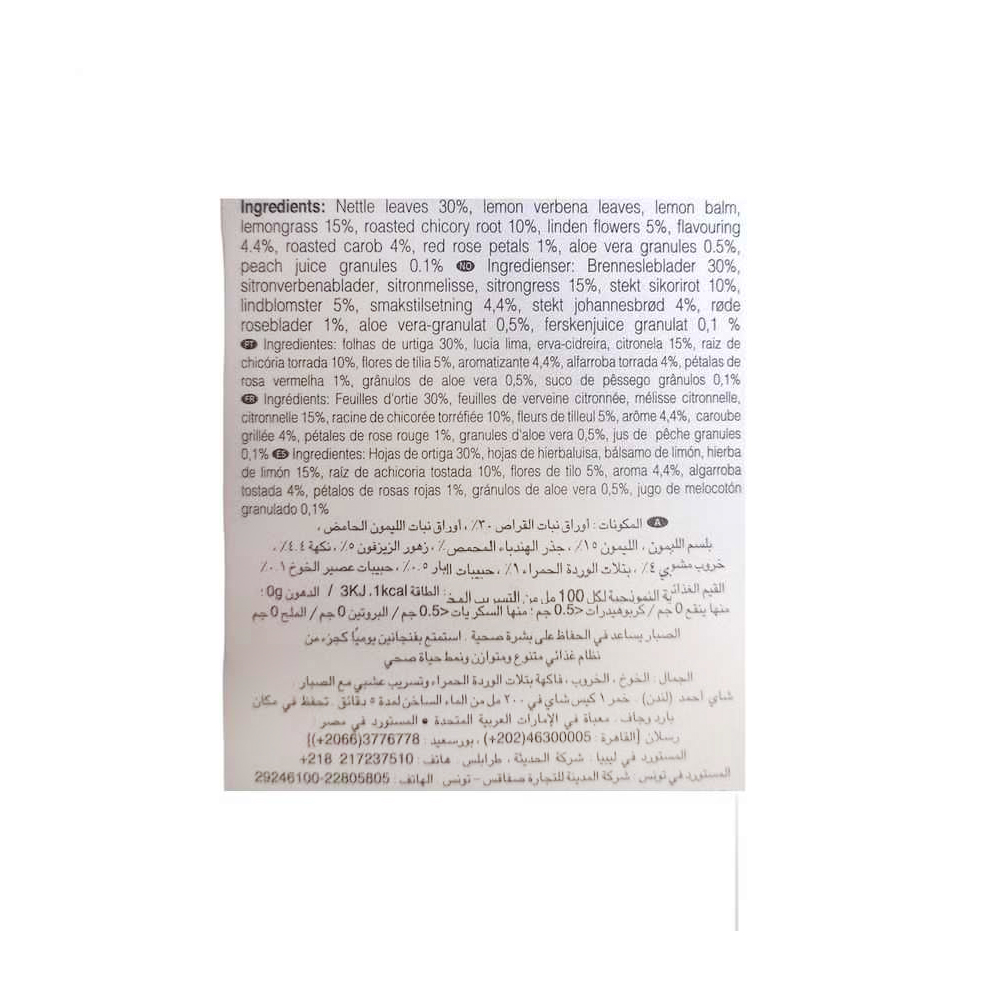 Ingredients: Nettle leaves 30%, lemon verbena leaves, lemon balm,
lemongrass 15%, roasted chicory root 10%, linden flowers 5%, flavouring
4.4%, roasted carob 4%, red rose petals 1%, aloe vera granules 0.5%,
peach juice granules 0.1% NO Ingredienser: Brennesleblader 30%,
sitronverbenablader, sitronmelisse, sitrongress 15%, stekt sikorirot 10%,
lindblomster 5%, smakstilsetning 4,4%, stekt johannesbrød 4%, røde
roseblader 1%, aloe vera-granulat 0,5%, ferskenjuice granulat 0,1 %
PT Ingredientes: folhas de urtiga 30%, lucia lima, erva-cidreira, citronela 15%, raiz de
chicória torrada 10%, flores de tília 5%, aromatizante 4,4%, alfarroba torrada 4%, pétalas de
rosa vermelha 1%, grânulos de aloe vera 0,5%, suco de pêssego grânulos 0,1%
FR Ingrédients: Feuilles d'ortie 30%, feuilles de verveine citronnée, mélisse citronnelle,
citronnelle 15%, racine de chicorée torréfiée 10%, fleurs de tilleul 5%, arôme 4,4%, caroube
grillée 4%, pétales de rose rouge 1%, granules d'aloe vera 0,5%, jus de pêche granules
0,1% ES Ingredientes: Hojas de ortiga 30%, hojas de hierbaluisa, bálsamo de limón, hierba
de limón 15%, raíz de achicoria tostada 10%, flores de tilo 5%, aroma 4,4%, algarroba
tostada 4%, pétalos de rosas rojas 1%, gránulos de aloe vera 0,5%, jugo de melocotón
granulado 0,1%
A المكونات : أوراق نبات القراص ٣٠٪ ، أوراق نبات الليمون الحامض ،
بلسم الليمون ، الليمون ١٥٪ ، جذر الهندباء المحمص ٪ ، زهور الزيزفون ٥٪ ، نكهة ٤.٤٪ ،
خروب مشوي ٤٪ ، بتلات الوردة الحمراء ١٪ ، حبيبات ٠.٥٪ ، حبيبات عصير الخوخ ٠.١٪
القيم الغذائية النموذجية لكل 100 مل من التسريب الطاقة 3KJ .1kcal / الدهون 0g :
منها ينفع 0 جم / كربوهيدرات <0.5 جم ؛ منها السكريات <0.5 جم / البروتين 0 جم / الملح 0 جم
الصبار يساعد في الحفاظ على بشرة صحية . استمتع بفنجانين يوميًا كجزء من
نظام غذائي متنوع ومتوازن ونمط حياة صحي
الجمال : الخوخ ، الخروب ، فاكهة بتلات الوردة الحمراء وتسريب عشبي مع الصبار
شاي أحمد (لندن) . خمر ١ كيس شاي في ٢٠٠ مل من الماء الساخن لمدة ٥ دقائق . تحفظ في مكان
بارد وجاف . معبأة في الإمارات العربية المتحدة • المستورد في مصر :
رسلان [القاهرة : 46300005(202+) ، بورسعيد : 3776778(2066+)]
المستورد في ليبيا : شركة الحديثة ، طرابلس . هاتف : 217237510 218+
المستورد في تونس : شركة المدينة للتجارة صفاقس – تونس . الهاتف : 22805805-29246100